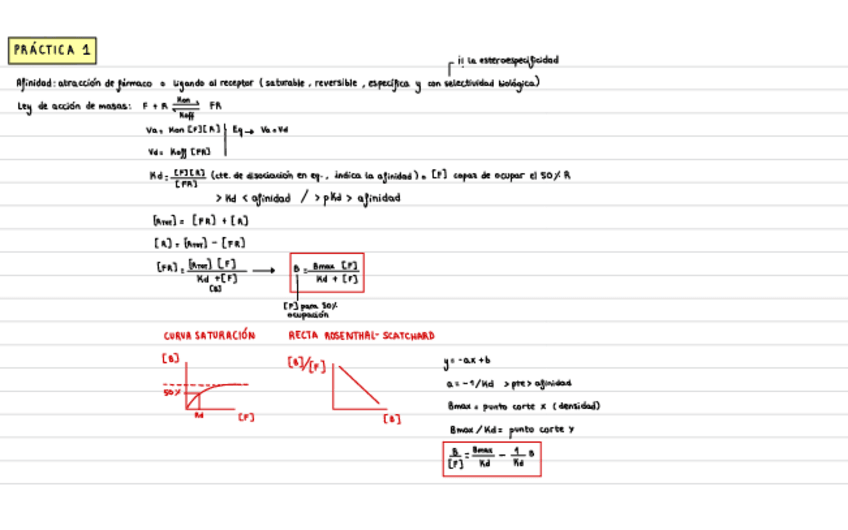 PRÁCTICA 1
¡¡ la esteroespecificidad
Afinidad: atracción de fármaco o ligando al receptor (saturable, reversible, específica y con selectividad biológica)
Ley de acción de masas: F + R ⇌ FR
Kon
Koff
Va = Kon [F][R] | Eq → Va = Vd
Vd = Koff [FR]
Kd = [F][R] / [FR] (cte. de disociación en eq., indica la afinidad) = [F] capaz de ocupar el 50% R
> Kd < afinidad / > pKd > afinidad
[RTOT] = [FR] + [R]
[R] = [RTOT] - [FR]
[FR] = [RTOT] [F] / Kd + [F] → B = Bmax [F] / Kd + [F]
[B]
[F] para 50%
ocupación
CURVA SATURACIÓN RECTA ROSENTHAL-SCATCHARD
[B] [B]/[F] y = -ax + b
50% a = -1/Kd >pte> afinidad
Kd [F] [B] Bmax = punto corte x (densidad)
Bmax/Kd = punto corte y
B/[F] = Bmax/Kd - 1/Kd B